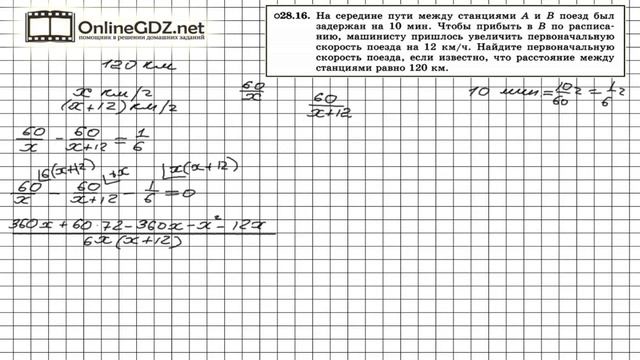 OnlineGDZ.net
помощник в решении домашних заданий
28.16. На середине пути между станциями A и B поезд был
задержан на 10 мин. Чтобы прибыть в B по расписа-
нию, машинисту пришлось увеличить первоначальную
скорость поезда на 12 км/ч. Найдите первоначальную
скорость поезда, если известно, что расстояние между
станциями равно 120 км.
120 км
x км/ч
(x+12) км/ч
60/x
60/(x+12)
10 мин = 10/60 ч = 1/6 ч
60/x - 60/(x+12) = 1/6
6(x+12) x(x+12)
60/x - 60/(x+12) - 1/6 = 0
360x + 60·72 - 360x - x² - 12x
6x(x+12)